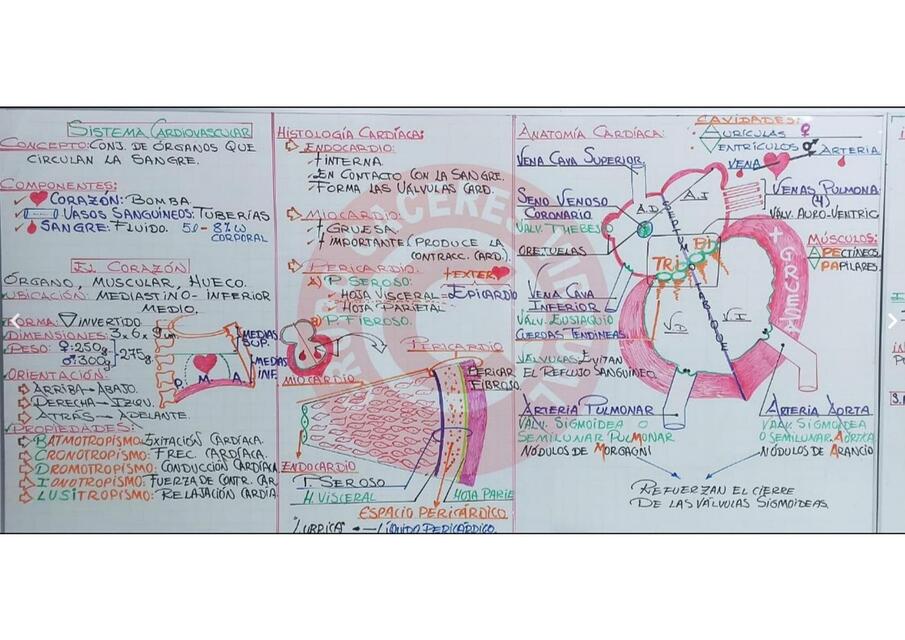 SISTEMA CARDIOVASCULAR
CONCEPTO: CONJ. DE ÓRGANOS QUE
CIRCULAN LA SANGRE.
COMPONENTES:
CORAZÓN: BOMBA.
VASOS SANGUÍNEOS: TUBERÍAS
SANGRE: FLUIDO. 5L - 8% W
CORPORAL
EL CORAZÓN
ÓRGANO, MUSCULAR, HUECO.
UBICACIÓN: MEDIASTINO - INFERIOR
MEDIO.
FORMA: INVERTIDO.
DIMENSIONES: 3 x 6 x 9 cm.
PESO: ♀: 250g
♂: 300g
275g.
MEDIAS
SUP.
MEDIAS
INF.
P. M. A.
ORIENTACIÓN:
ARRIBA → ABAJO.
DERECHA → IZQU.
ATRÁS → ADELANTE.
PROPIEDADES:
BATMOTROPISMO: EXITACIÓN CARDÍACA.
CRONOTROPISMO: FREC. CARDÍACA.
DROMOTROPISMO: CONDUCCIÓN CARDÍACA
IONOTROPISMO: FUERZA DE CONTR. CAR
LUSITROPISMO: RELAJACIÓN CARDÍA
HISTOLOGÍA CARDÍACA:
ENDOCARDIO:
+ INTERNA.
EN CONTACTO CON LA SANGRE.
FORMA LAS VÁLVULAS CARD.
MIOCARDIO:
+ GRUESA.
+ IMPORTANTE (PRODUCE LA
CONTRACC. CARD).
PERICARDIO:
+ EXTER.
A) P SEROSO:
HOJA VISCERAL = EPICARDIO
HOJA PARIETAL
B) P FIBROSO.
PERICARDIO
PERICAR
FIBROSO.
MIOCARDIO
ENDOCARDIO
P. SEROSO
H. VISCERAL
HOJA PARIE
ESPACIO PERICÁRDICO
LUBRICA ← LÍQUIDO PERICÁRDICO.
ANATOMÍA CARDÍACA:
CAVIDADES:
AURÍCULAS ♀
VENTRÍCULOS ♂
VENA
ARTERIA
VENA CAVA SUPERIOR
SENO VENOSO
CORONARIO
VALV. THEBESIO
OREJUELAS
VENA CAVA
INFERIOR
VÁLV. EUSTAQUIO
CUERDAS TENDINEAS
VÁLVULAS: EVITAN
EL REFLUJO SANGUÍNEO.
A.D
A.I
TRI
BI
V.D
V.I
+ GRUESA
VENAS PULMONA
(4)
VALV. AURO-VENTRIC
MÚSCULOS:
A PECTÍNEOS
V PAPILARES.
ARTERIA PULMONAR
VALV. SIGMOIDEA O
SEMILUNAR PULMONAR
NÓDULOS DE MORGAGNI
ARTERIA AORTA
VALV. SIGMOIDEA
O SEMILUNAR AÓRTICA
NÓDULOS DE ARANCIO
REFUERZAN EL CIERRE
DE LAS VÁLVULAS SIGMOIDEAS.